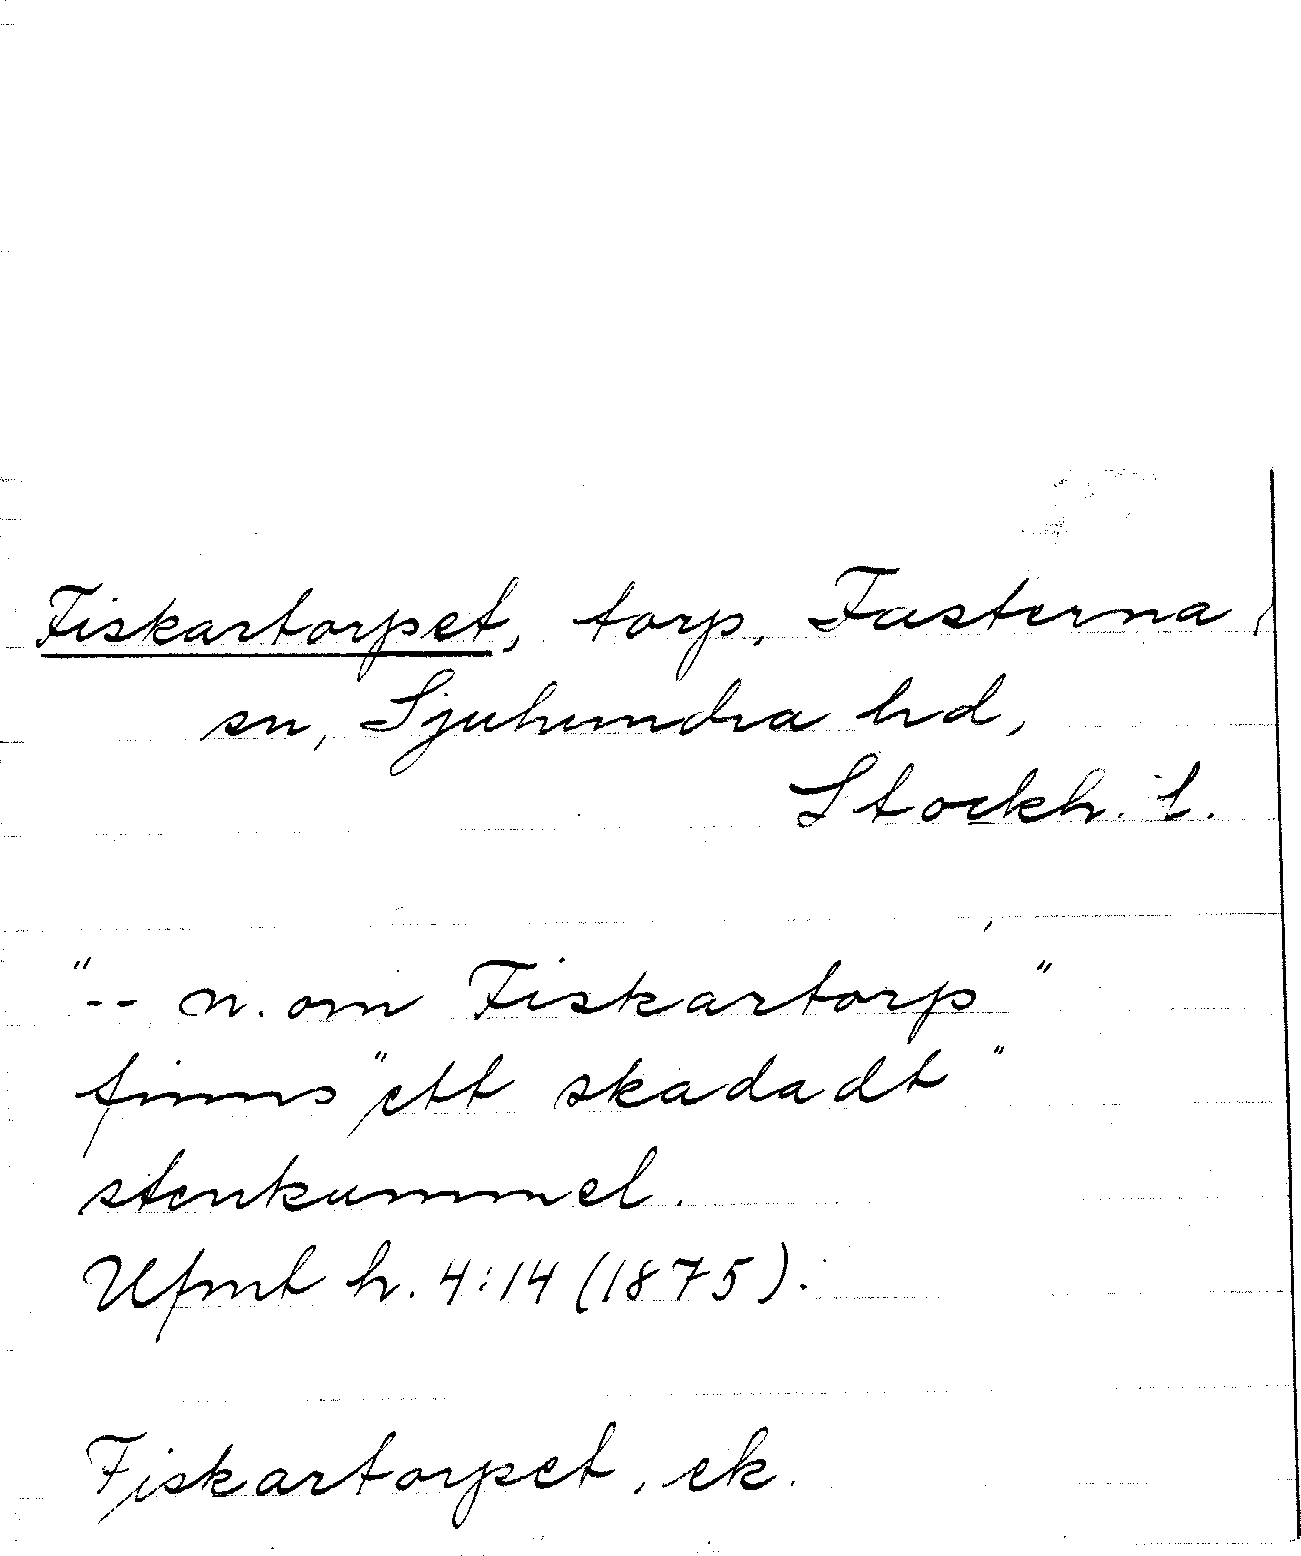 Fiskartorpet, torp, Fasterna
sn, Sjuhundra hd,
Stockh. l.
"-- n. om Fiskartorp"
finns "ett skadadt"
stenkummel.
Ufmt h. 4:14 (1875).
Fiskartorpet, ek.